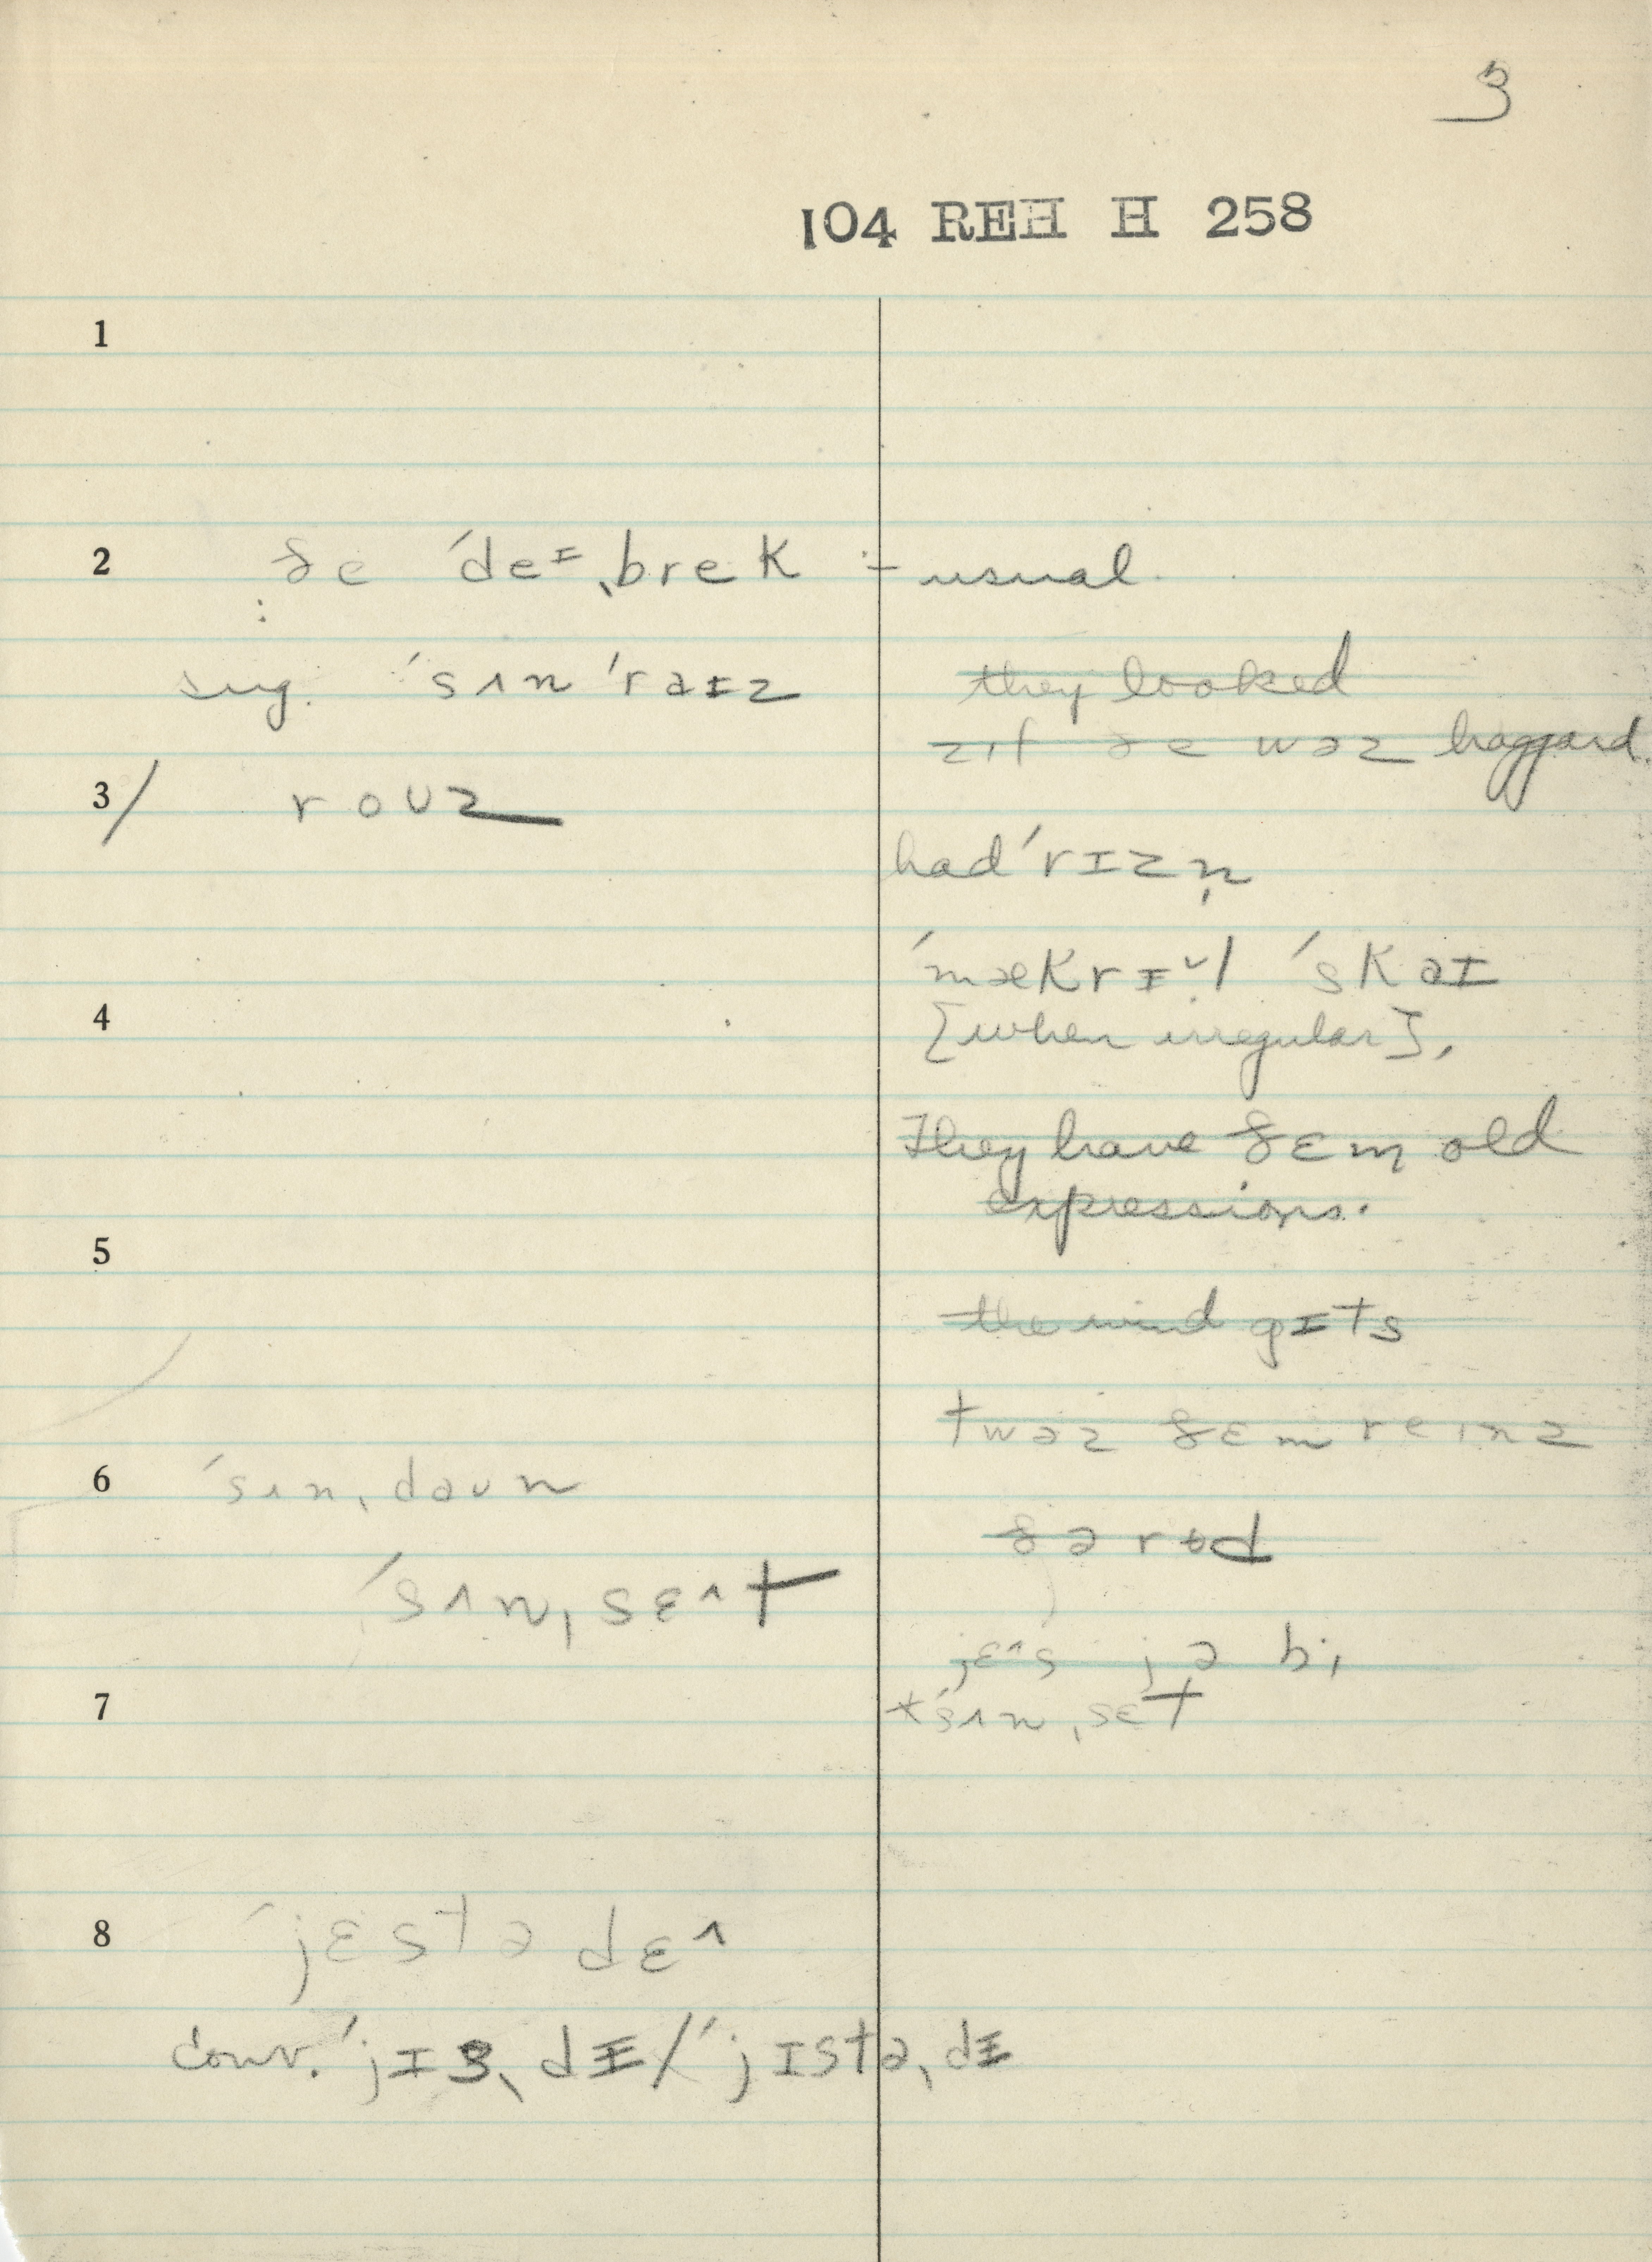 3
104 REH H 258
1
2 ðe ˈdeᶦˌbrek ÷ usual.
:
sug. ˈsʌn ˈraɪz
they looked
zɪf ðe wəz haggard.
3/ roʊz
had ˈrɪzn̩
ˈmækrɪ˅l ˈskaɪ
4 [when irregular],
They have ðɛm old
expressions.
5
the wind gɪts
twəz ðɛm reɪnz
6 ˈsʌnˌdaʊn
ðə rod
ˈsʌnˌsɛ^t
jɛ^s jə bi,
7 *ˈsʌnˌsɛt
8 ˈjɛstədɛ^
conv. ˈjɪsˌdɪ / ˈjɪstəˌdɪ